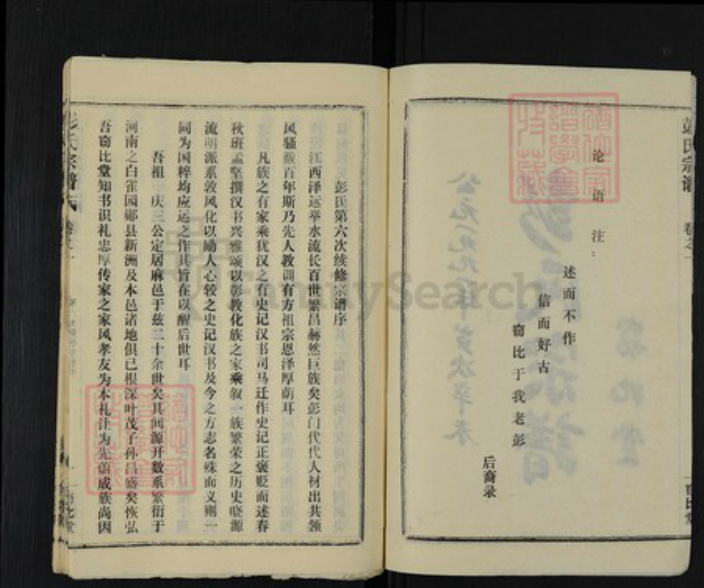 彭氏宗谱
卷之一
论语注：
述而不作
信而好古
窃比于我老彭
后裔录
彭氏第六次续修宗谱序
江西泽运举水流长百世繁昌赫然巨族矣彭门代代人材出共领
风骚数百年斯乃先人教训有方祖宗恩泽厚荫耳
凡族之有家乘犹汉之有史记汉书司马迁作史记正褒贬而述春
秋班孟坚撰汉书兴雅颂以彰教化族之家乘叙一族繁荣之历史晓源
流明派系敦风化以励人心较之史记汉书及今之方志名殊而义则一
同为国粹均应运之作其旨在以醒后世耳
吾祖 庆三公定居麻邑于兹二十余世矣其间源开数系繁衍于
河南之白雀园郧县新洲及本邑诸地俱已根深叶茂子孙昌盛矣恢弘
吾窃比堂知书识礼忠厚传家之家风孝友为本礼让为先蔚成族尚因
彭氏宗谱
卷之一
窃比堂
FamilySearch